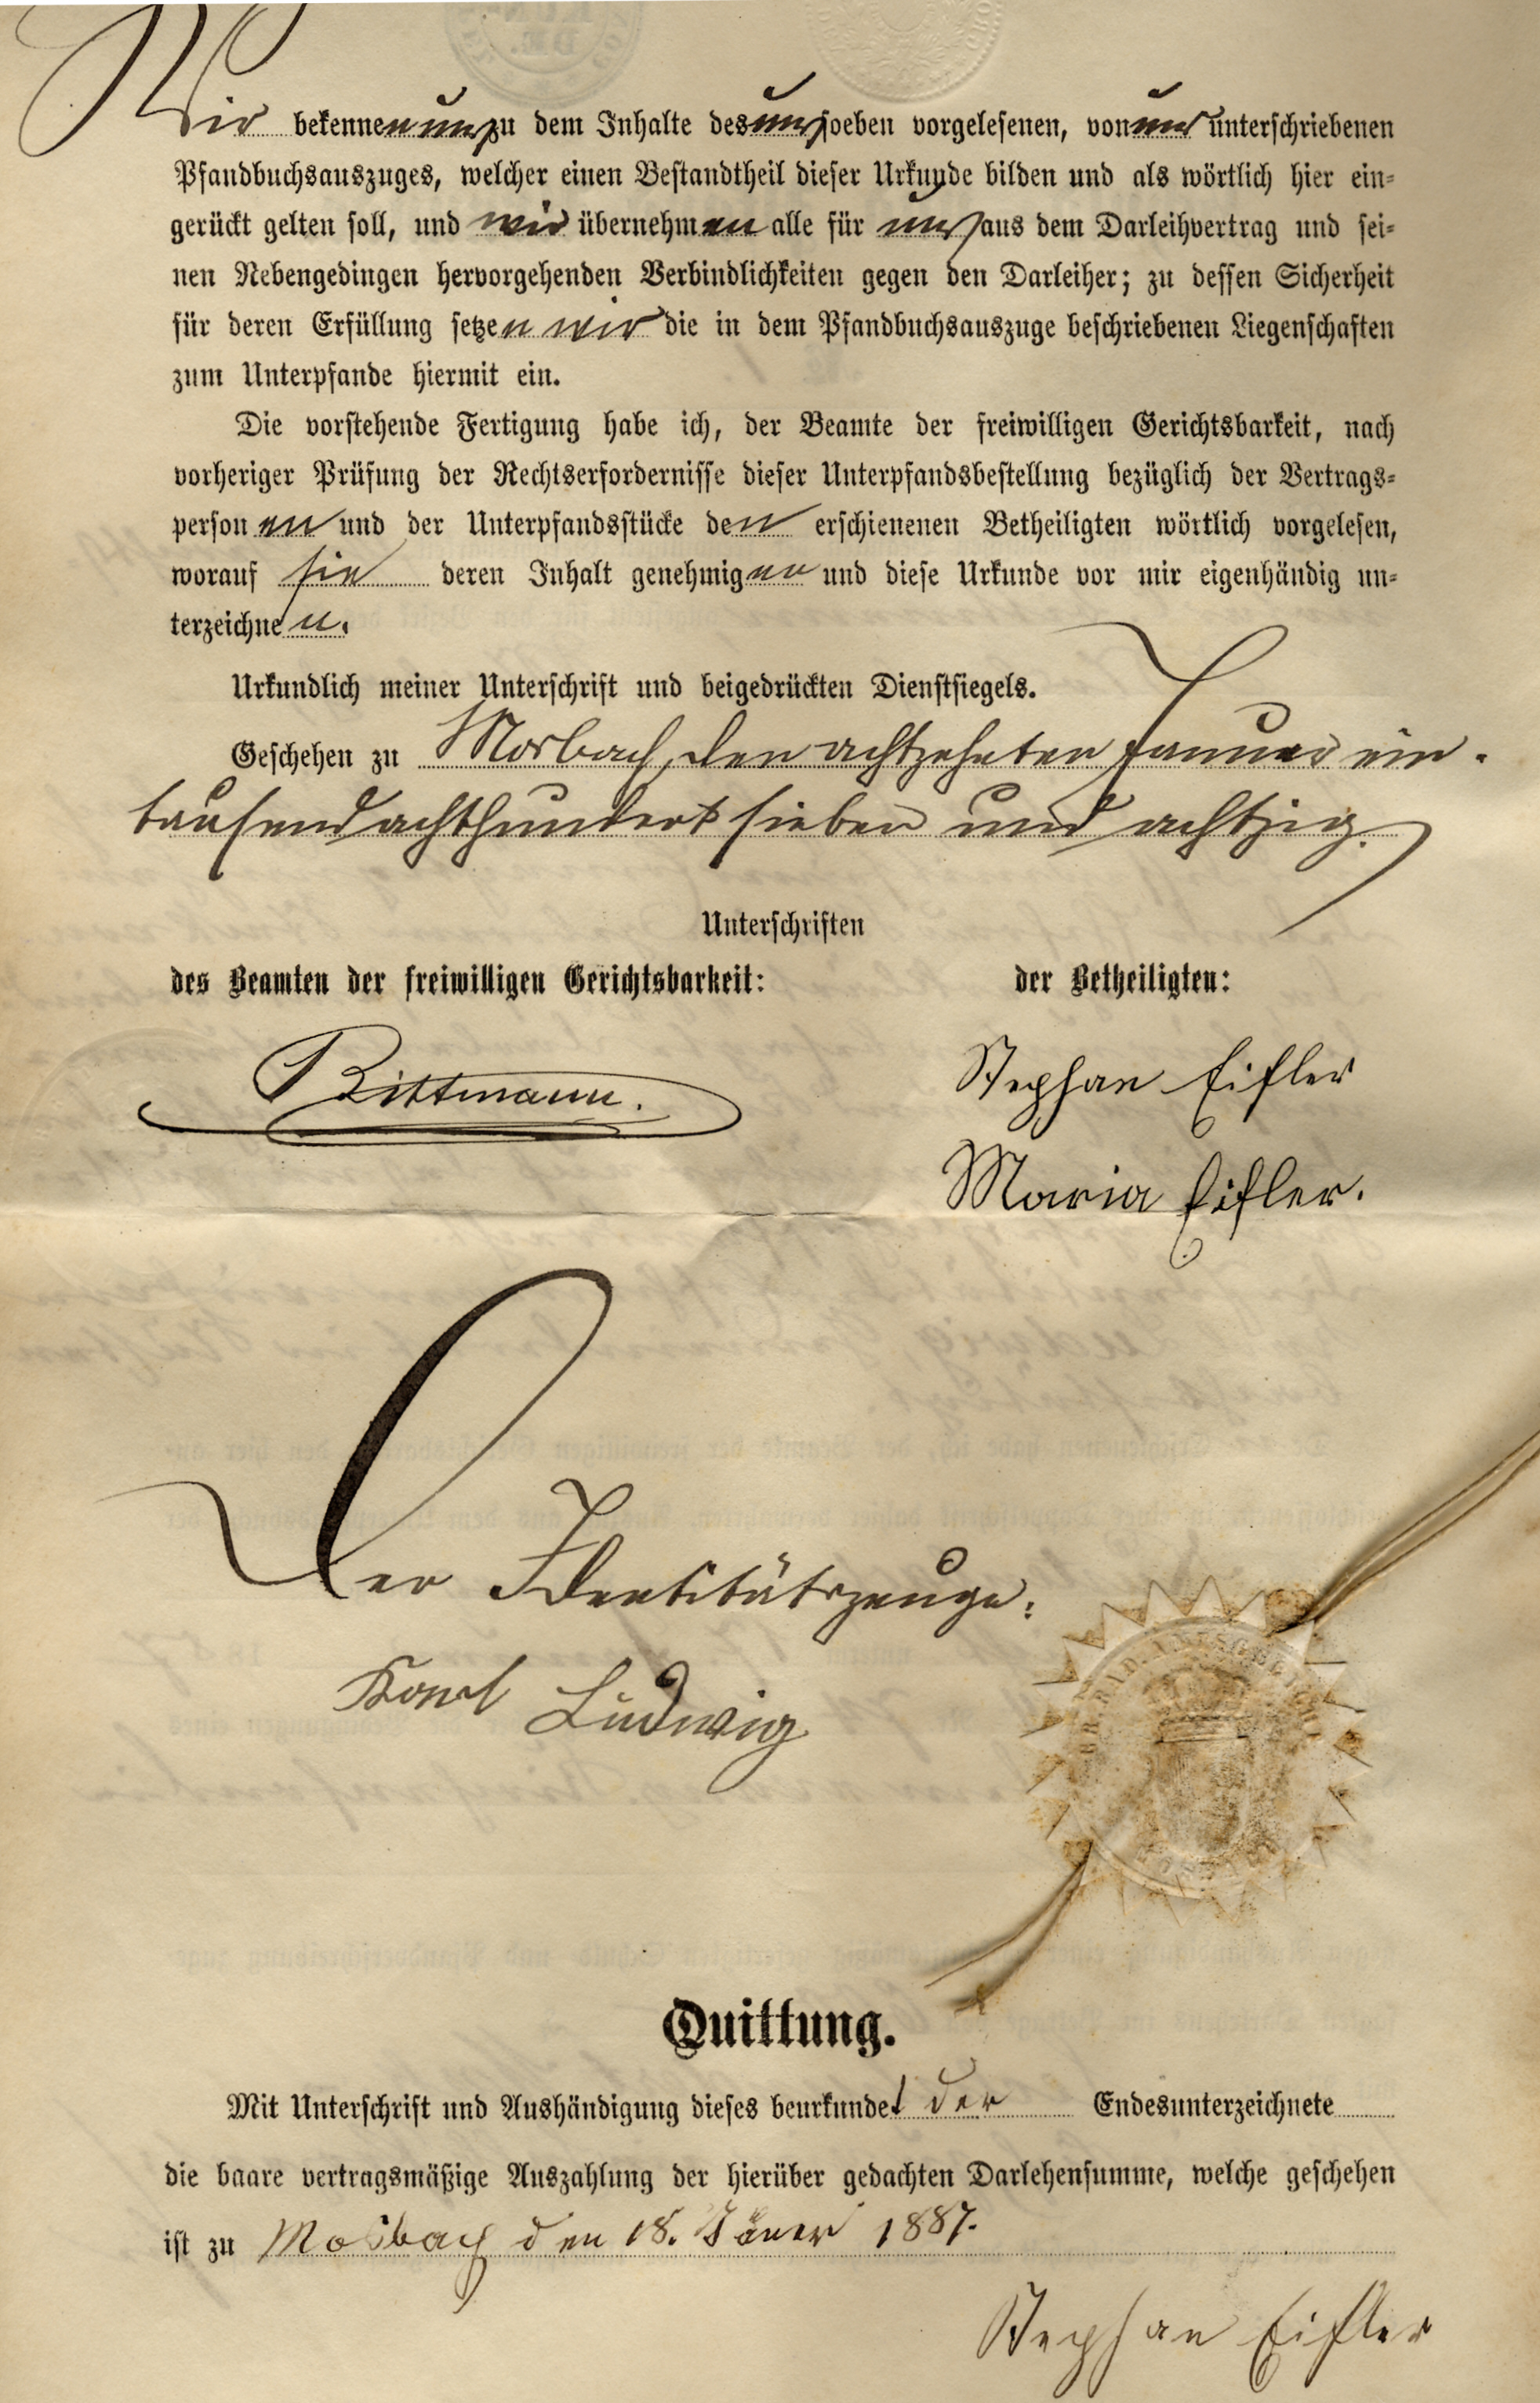 Wir bekennen uns zu dem Inhalte des uns soeben vorgelesenen, von uns unterschriebenen
Pfandbuchsauszuges, welcher einen Bestandtheil dieser Urkunde bilden und als wörtlich hier ein-
gerückt gelten soll, und wir übernehmen alle für uns aus dem Darleihvertrag und sei-
nen Nebengedingen hervorgehenden Verbindlichkeiten gegen den Darleiher; zu dessen Sicherheit
für deren Erfüllung setzen wir die in dem Pfandbuchsauszuge beschriebenen Liegenschaften
zum Unterpfande hiermit ein.
Die vorstehende Fertigung habe ich, der Beamte der freiwilligen Gerichtsbarkeit, nach
vorheriger Prüfung der Rechtserfordernisse dieser Unterpfandsbestellung bezüglich der Vertrags-
personen und der Unterpfandsstücke den erschienenen Betheiligten wörtlich vorgelesen,
worauf sie deren Inhalt genehmigen und diese Urkunde vor mir eigenhändig un-
terzeichnen.
Urkundlich meiner Unterschrift und beigedrückten Dienstsiegels.
Geschehen zu Mosbach, den achtzehnten Januar ein-
tausendachthundert sieben und achtzig.
Unterschriften
des Beamten der freiwilligen Gerichtsbarkeit: der Betheiligten:
Bittmann. Stephan Eifler
Maria Eifler.
Der Identitätszeuge:
Karl Ludwig
Quittung.
Mit Unterschrift und Aushändigung dieses beurkundet der Endesunterzeichnete
die baare vertragsmäßige Auszahlung der hierüber gedachten Darlehensumme, welche geschehen
ist zu Mosbach den 18. Jäner 1887.
Stephan Eifler